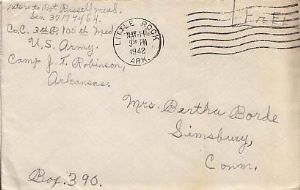 Return to Pvt Russell
Ser. 37179464
Co. C. 3rd Bn 100th Med
U.S. Army.
Camp J. T. Robinson,
Arkansas.
LITTLE ROCK
1942
ARK.
FREE
Mrs. Bertha Borde
Simsbury,
Conn.
Box 390.